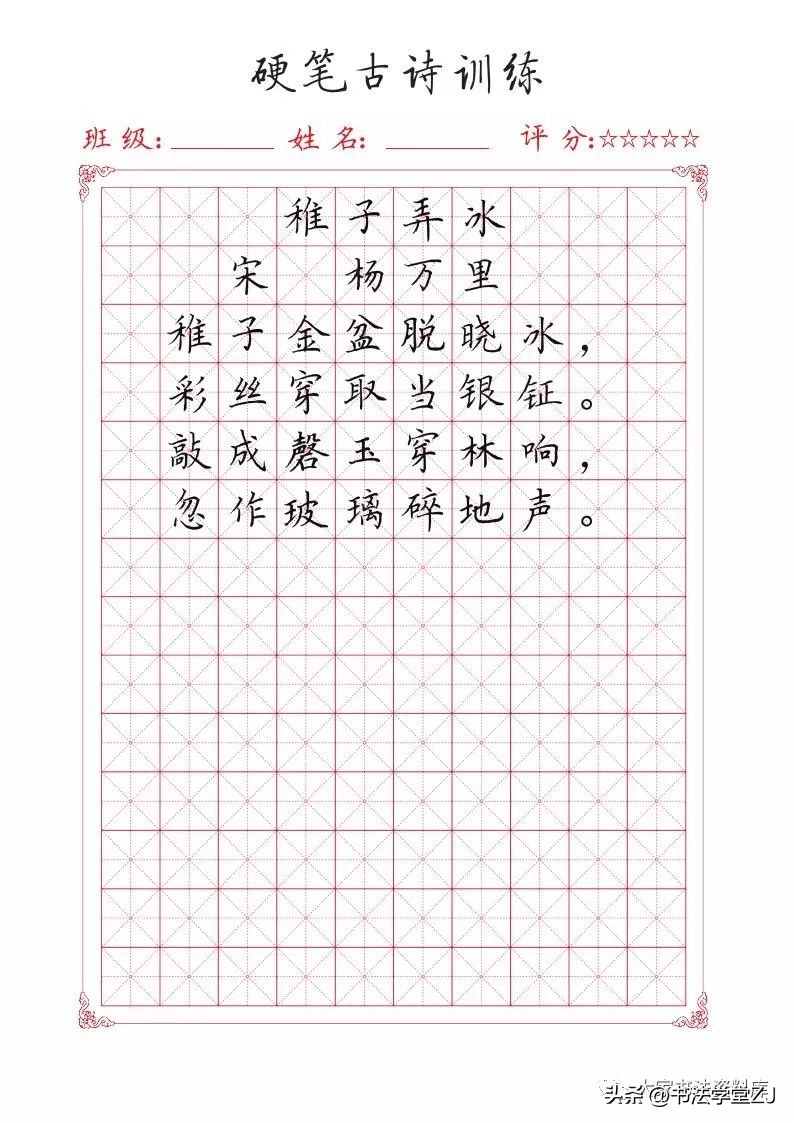 硬笔古诗训练
班级: 姓名: 评分:☆☆☆☆☆
稚子弄冰
宋 杨万里
稚子金盆脱晓冰，
彩丝穿取当银钲。
敲成磬玉穿林响，
忽作玻璃碎地声。
头条 @书法学堂ZJ